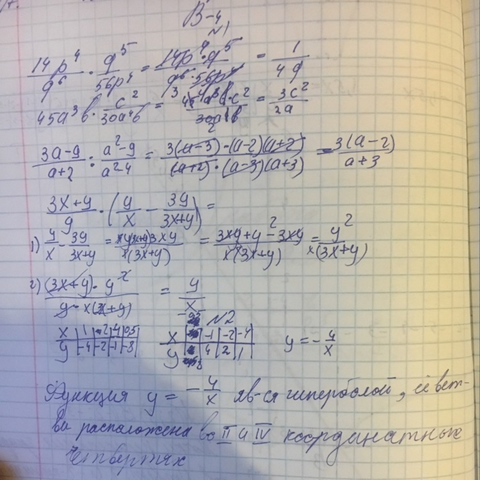 В-4
№1
14p⁴/q⁶ · q⁵/56p⁴ = 14p⁴ · q⁵/q⁶ · 56p⁴ = 1/4q
45a³b · c²/30a⁴b = 45a³b · c²/30a⁴b = 3c²/2a
3a-9/a+2 : a²-9/a²-4 = 3(a-3)·(a-2)(a+2)/(a+2)·(a-3)(a+3) = 3(a-2)/a+3
3x+y/y · (y/x - 3y/3x+y) =
1) y/x - 3y/3x+y = = 3xy+y²-3xy/x(3x+y) = y²/x(3x+y)
2) (3x+y) · y²/y · x(3x+y) = y/x
№2
x | 1 | 2 | 4 | 0,5 x | -1 | -2 | -4 y = -4/x
y | -4 | -2 | -1 | -8 y | 4 | 2 | 1
Функция y = -4/x яв-ся гиперболой, её вет-
ви расположена во II и IV координатных
четвертях